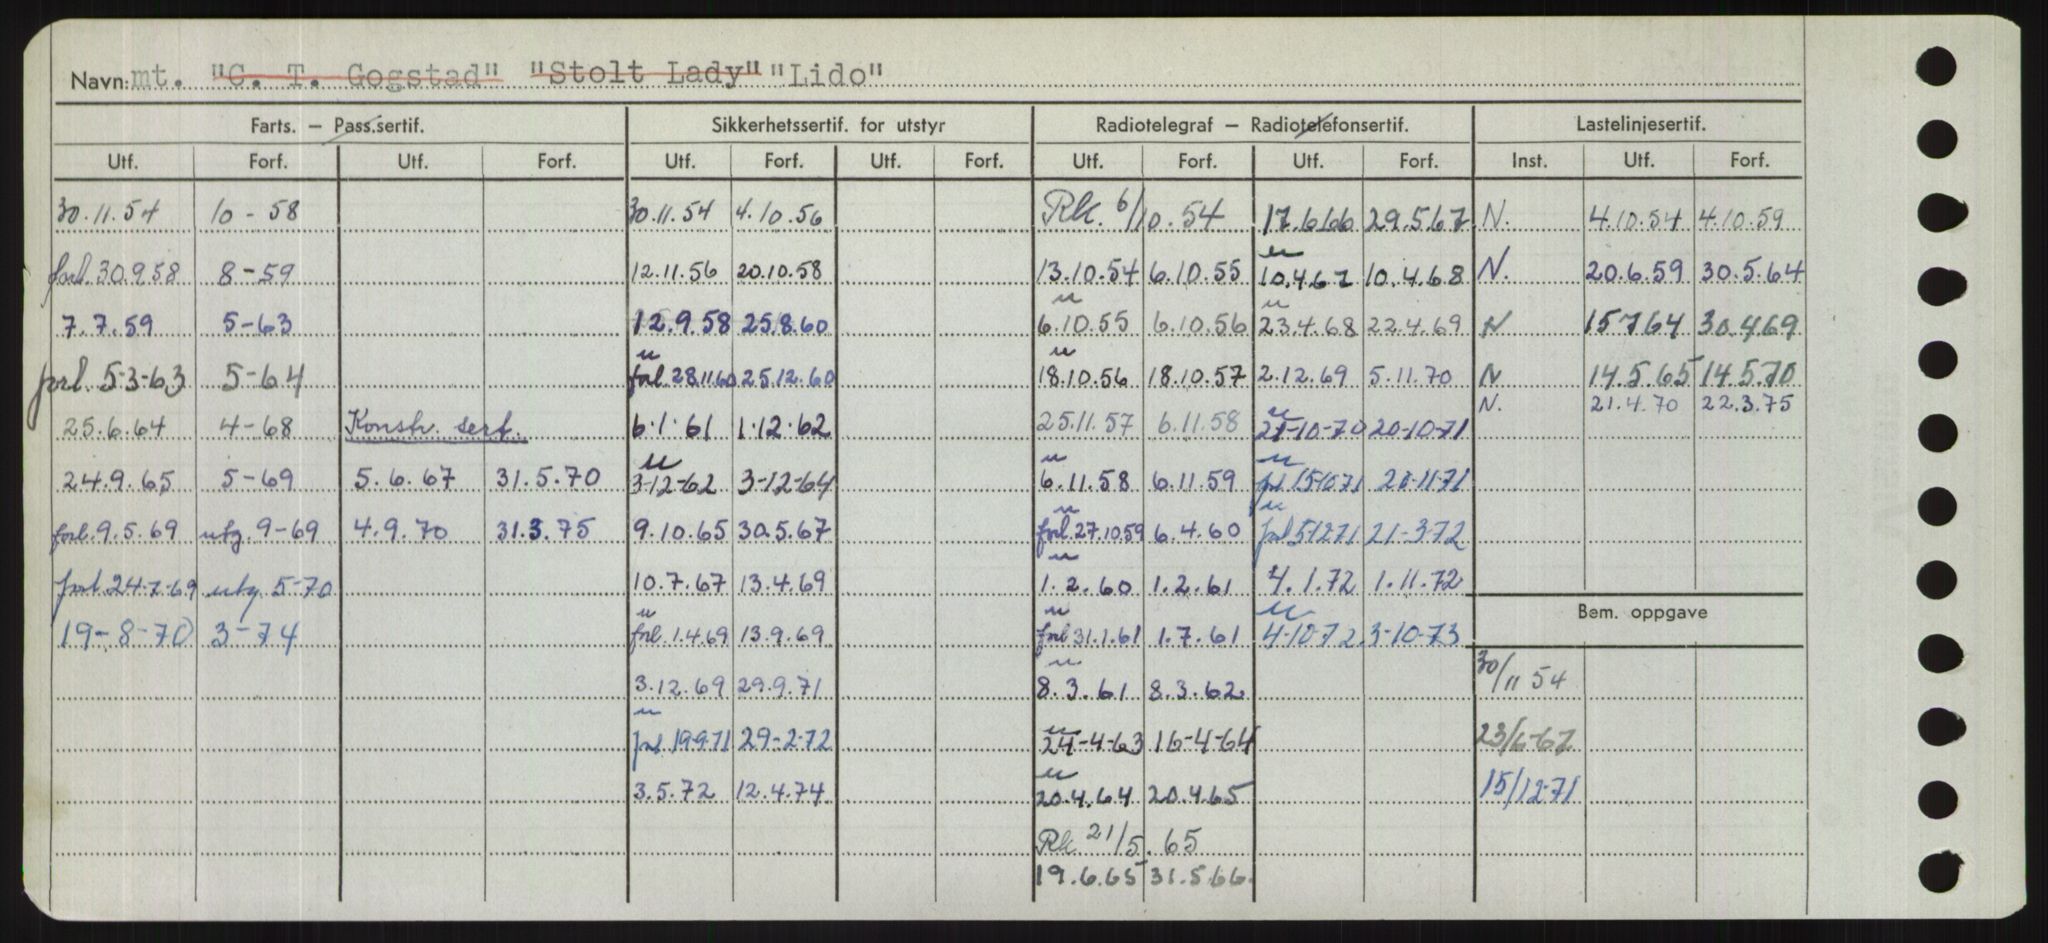 Navn: mt. "C. T. Gogstad" "Stolt Lady" "Lido"
Farts. – Pass.sertif. Sikkerhetssertif. for utstyr Radiotelegraf – Radiotelefonsertif. Lastelinjesertif.
Utf. Forf. Utf. Forf. Utf. Forf. Utf. Forf. Utf. Forf. Utf. Forf. Inst. Utf. Forf.
30.11.54 10-58 30.11.54 4.10.56 Rk. 6/10.54 17.6.66 29.5.67 N. 4.10.54 4.10.59
forl. 30.9.58 8-59 12.11.56 20.10.58 13.10.54 6.10.55 u 10.4.67 10.4.68 N. 20.6.59 30.5.64
7.7.59 5-63 12.9.58 25.8.60 u 6.10.55 6.10.56 u 23.4.68 22.4.69 N 15 7 64 30.4.69
forl. 5-3-63 5-64 u forl. 28.11.60 25.12.60 u 18.10.56 18.10.57 2.12.69 5.11.70 N 14.5.65 14.5.70
N. 21.4.70 22.3.75
25.6.64 4-68 Konstr. sert. 6.1.61 1.12.62 25.11.57 6.11.58 u 21-10-70 20-10-71
24.9.65 5-69 5.6.67 31.5.70 u 3-12-62 3-12-64 u 6.11.58 6.11.59 u forl 15-10-71 20-11-71
forl. 9.5.69 utg. 9-69 4.9.70 31.3.75 9.10.65 30.5.67 u forl. 27.10.59 6.4.60 u forl 5-12-71 21-3-72
forl. 24-7-69 utg. 5-70 10.7.67 13.4.69 u 1.2.60 1.2.61 4.1.72 1.11.72
Bem. oppgave
19-8-70 3-74 u forl. 1.4.69 13.9.69 u forl 31.1.61 1.7.61 u 4-10-72 3-10-73
3.12.69 29.9.71 u 8.3.61 8.3.62 30/11 54
u forl 19-9-71 29-2-72 u 24-4-63 16-4-64 23/6-67
3.5.72 12.4.74 u 20.4.64 20.4.65 15/12-71
Rk 21/5.65
19.6.65 31.5.66